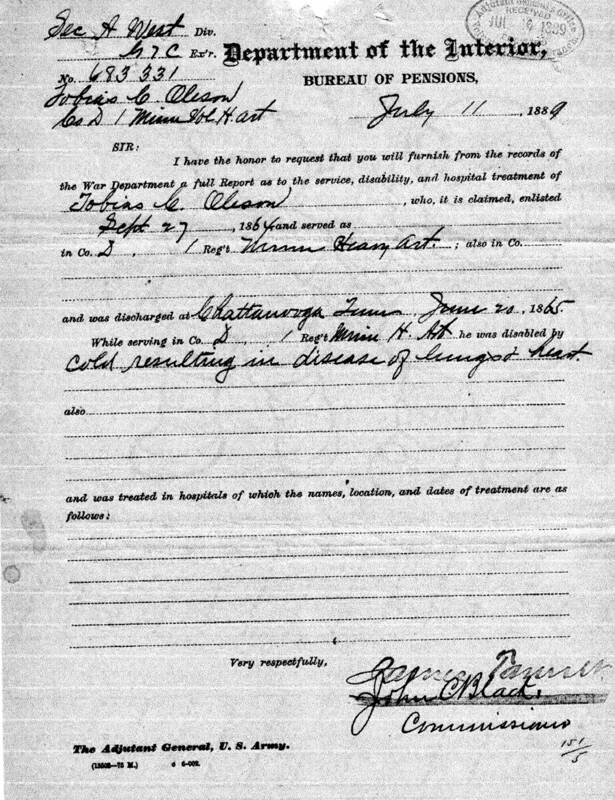 Sec A West Div.
G T C Ex'r.
No. 683 331
Tobias C. Oleson
Co D 1 Minn Vol H art
Adjutant General's Office
RECEIVED
JUL 1889
Department of the Interior,
BUREAU OF PENSIONS,
July 11, 1889
SIR:
I have the honor to request that you will furnish from the records of
the War Department a full Report as to the service, disability, and hospital treatment of
Tobias C. Oleson, who, it is claimed, enlisted
Sept 27, 1864 and served as
in Co. D, 1 Reg't Minn Heavy Art.; also in Co.
and was discharged at Chattanooga Tenn June 20, 1865.
While serving in Co. D, 1 Reg't Minn H. Art he was disabled by
cold resulting in disease of lungs & heart.
also
and was treated in hospitals of which the names, location, and dates of treatment are as
follows:
Very respectfully,
James Tanner
John C Black,
Commissioner
The Adjutant General, U. S. Army.
151/5
6—002.